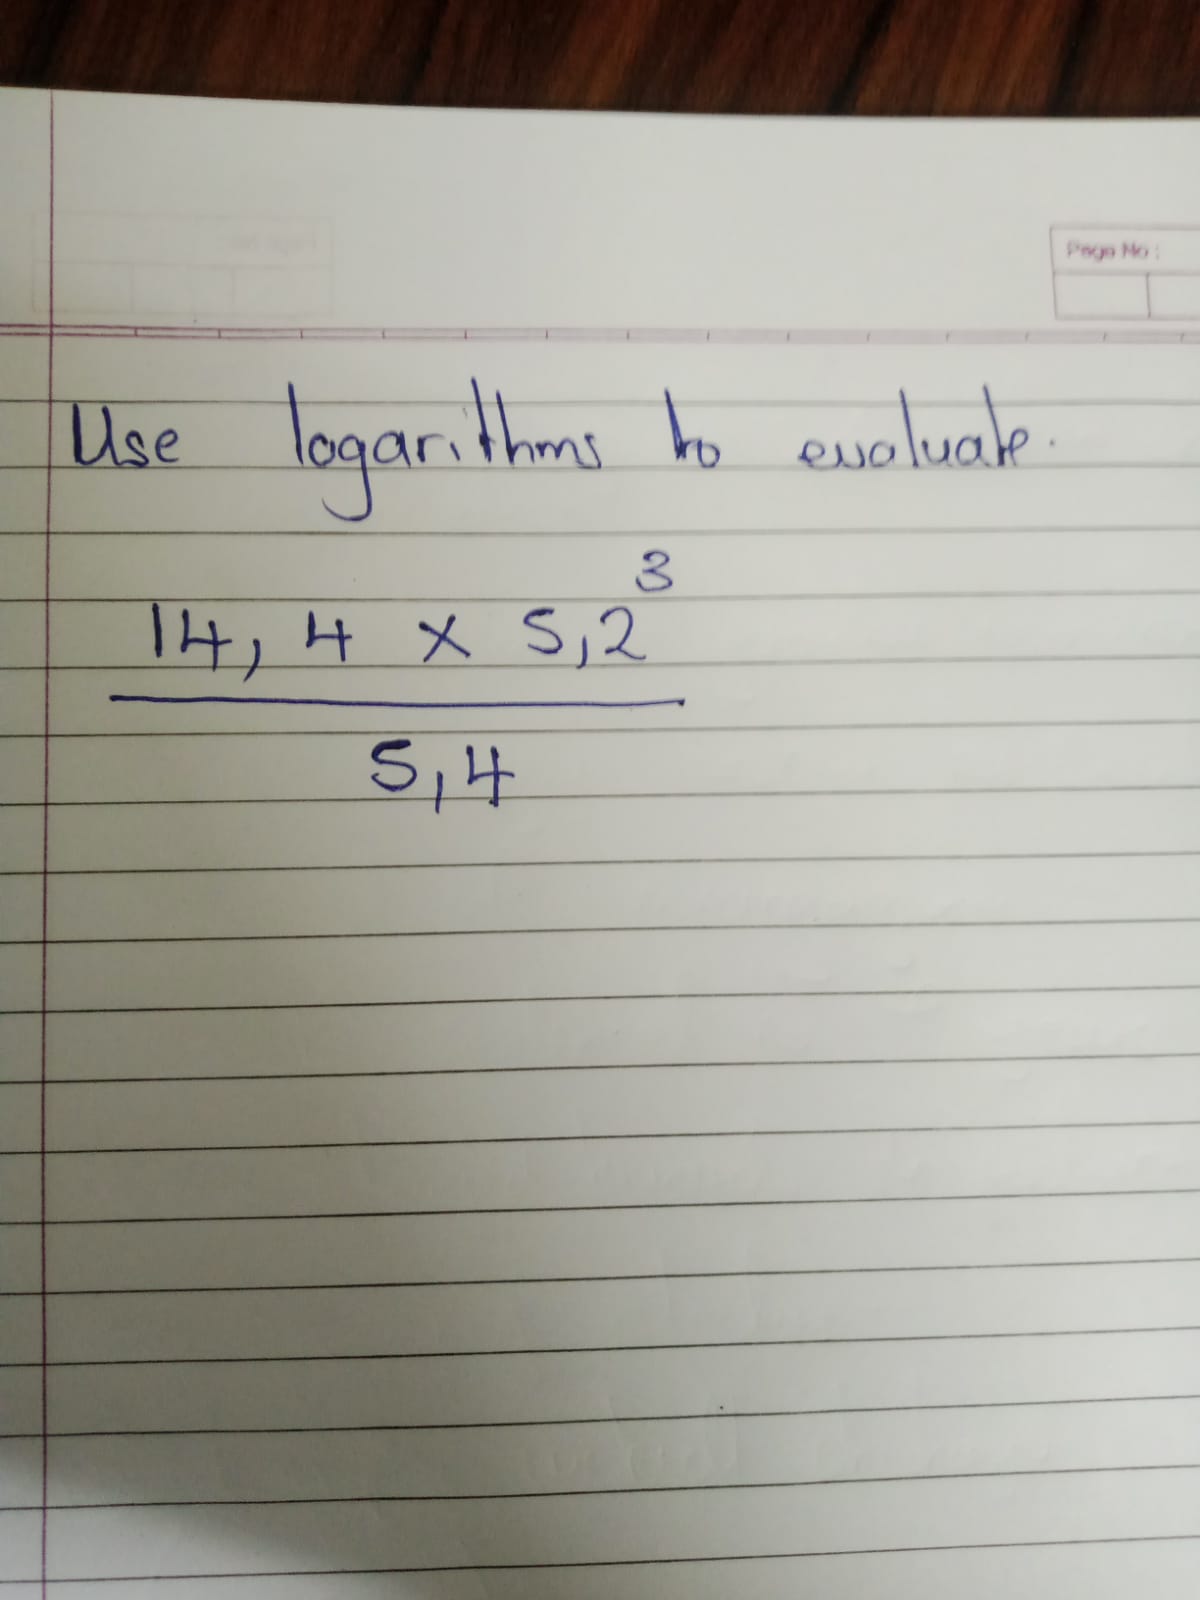 Page No :
Use logarithms to evaluate.
14,4 x 5,2³
5,4